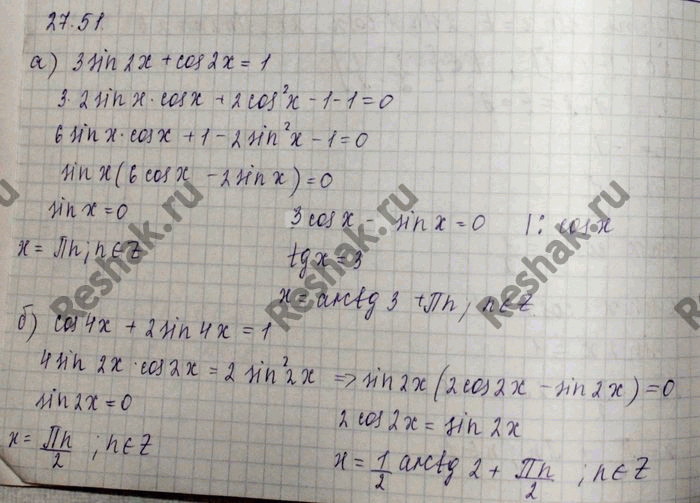 27.51.
а) 3 sin 2x + cos 2x = 1
3·2 sin x · cos x + 2 cos²x - 1 - 1 = 0
6 sin x · cos x + 1 - 2 sin²x - 1 = 0
sin x (6 cos x - 2 sin x) = 0
sin x = 0
x = Πn; n∈Z
3 cos x - sin x = 0 |: cos x
tg x = 3
x = arctg 3 + Πn; n∈Z
б) cos 4x + 2 sin 4x = 1
4 sin 2x · cos 2x = 2 sin² 2x => sin 2x (2 cos 2x - sin 2x) = 0
sin 2x = 0
x = Πn/2 ; n∈Z
2 cos 2x = sin 2x
x = 1/2 arctg 2 + Πn/2 ; n∈Z
Reshak.ru
Reshak.ru
Reshak.ru